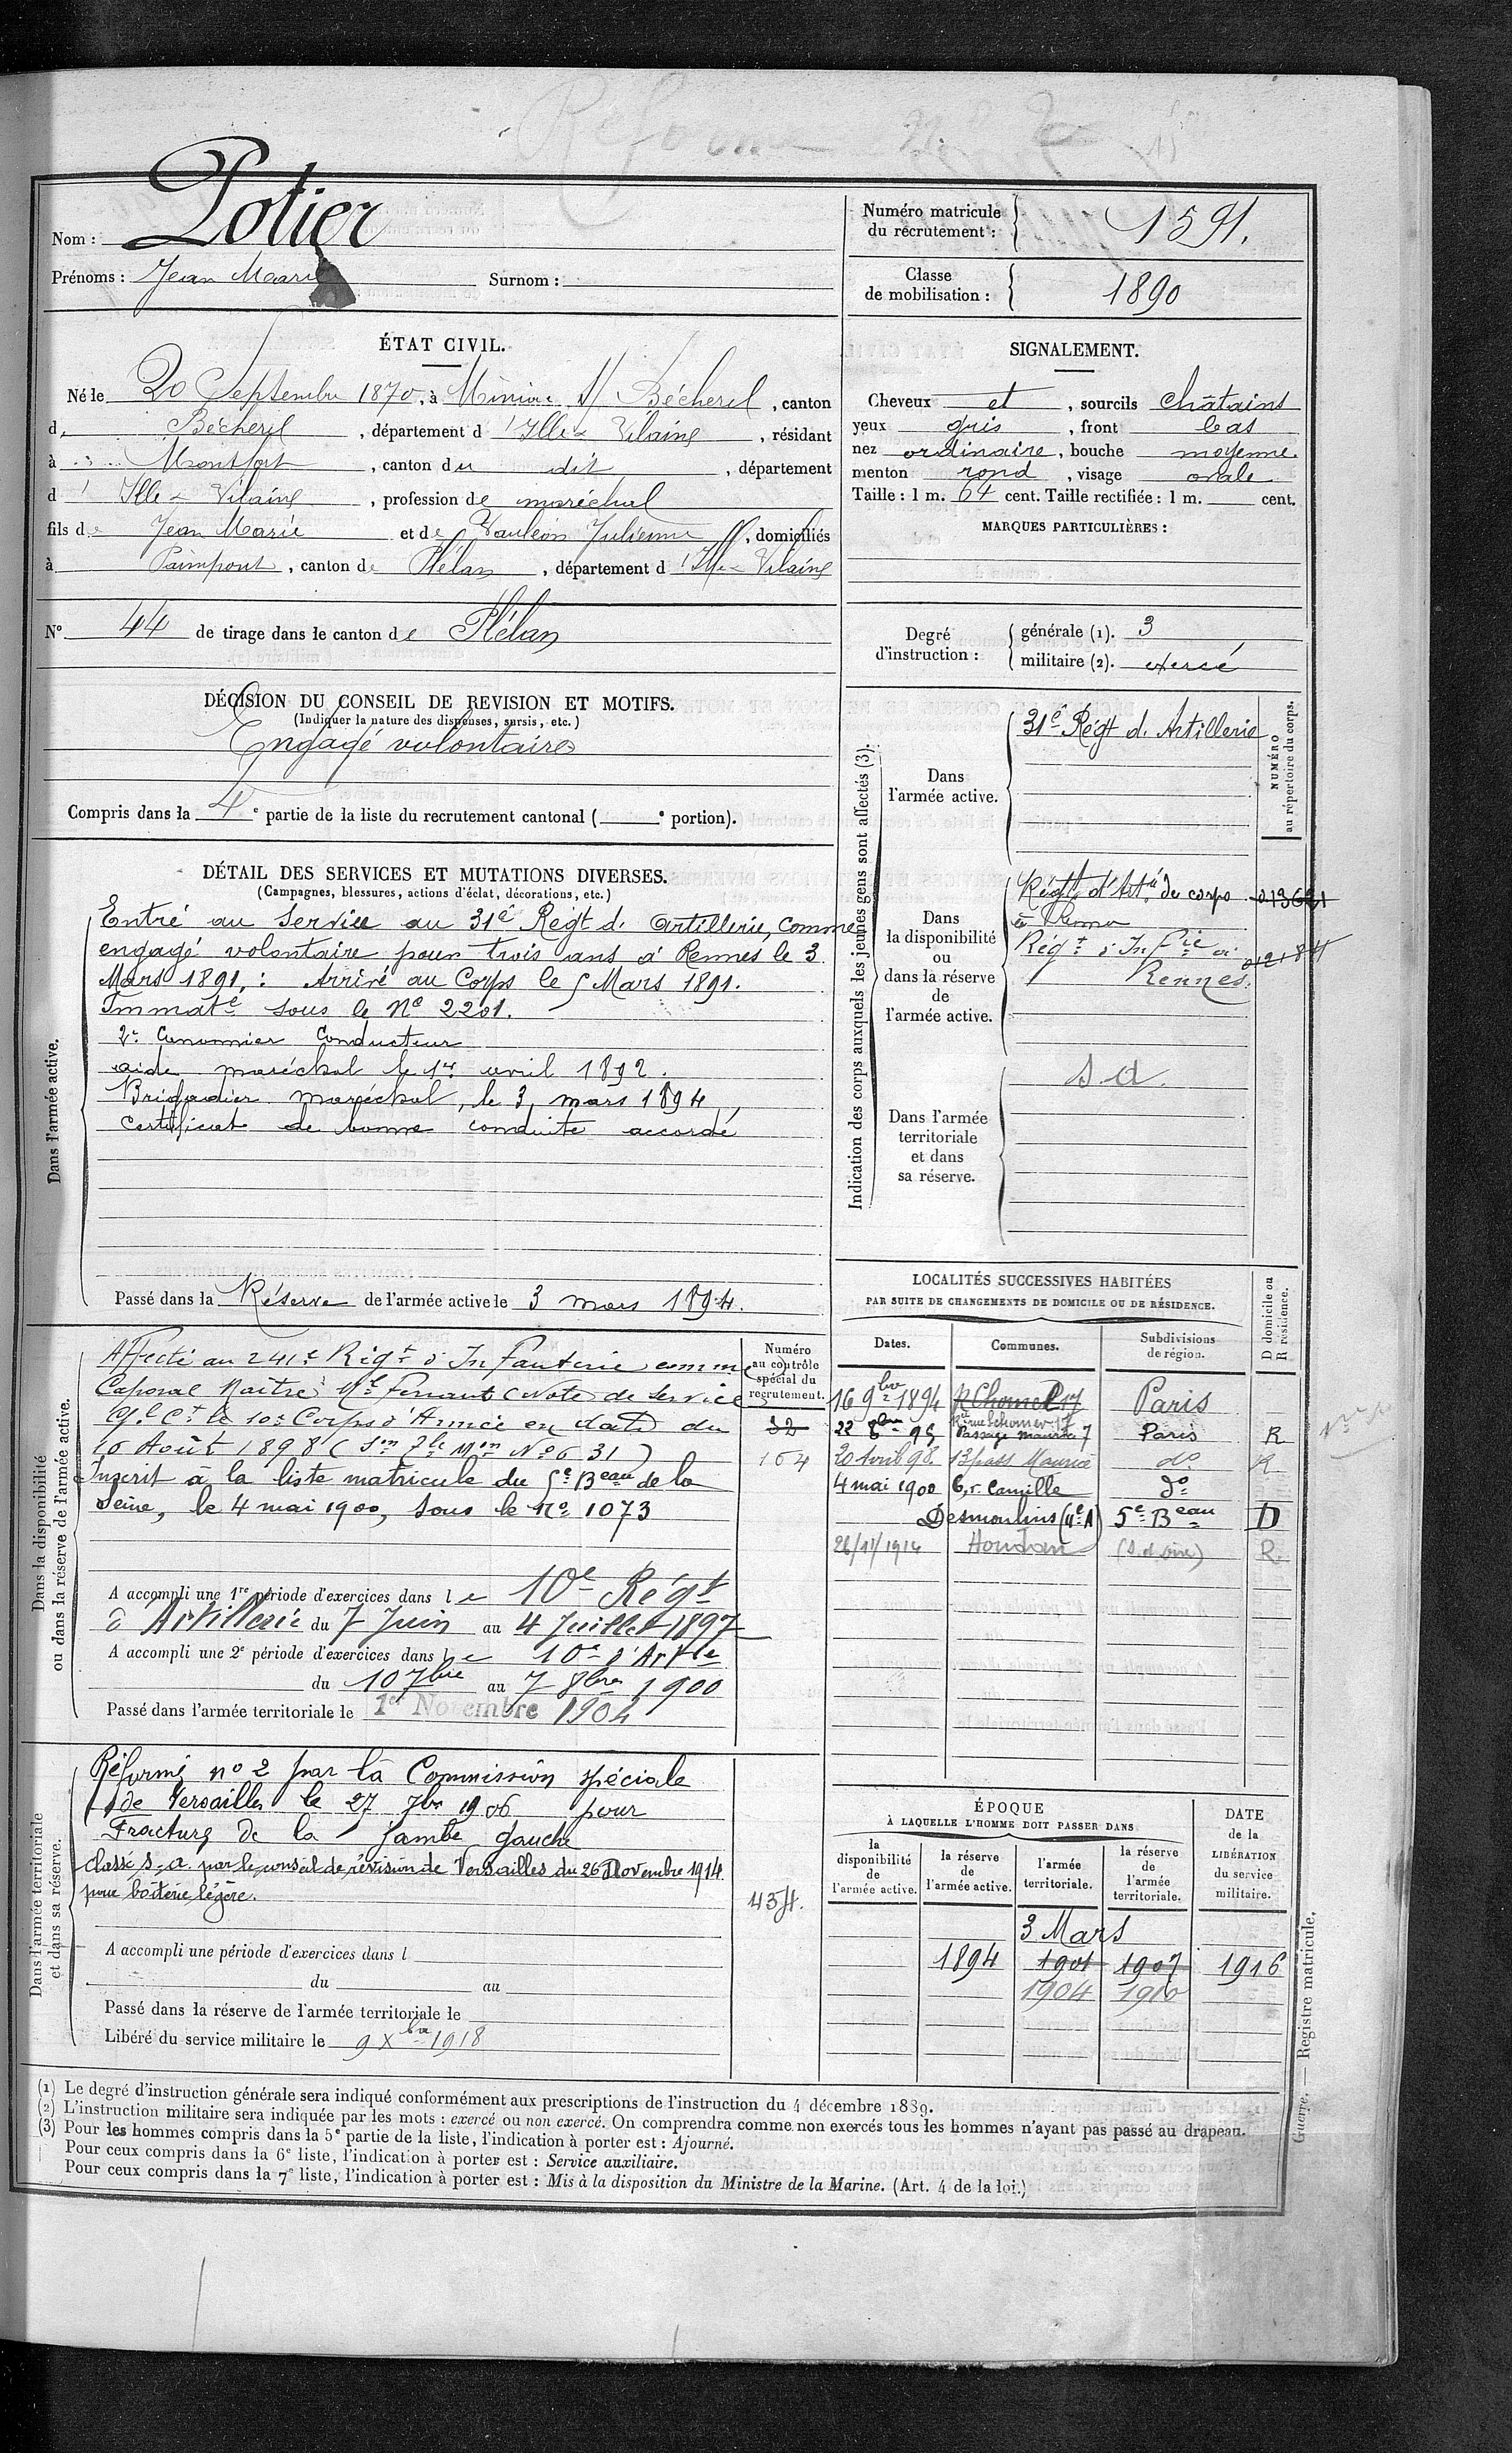 Réforme n° 2
Nom : Potier
Prénoms : Jean Marie Surnom :
Numéro matricule du recrutement : 1591.
Classe de mobilisation : 1890
ÉTAT CIVIL.
Né le 20 Septembre 1870, à Miniac s/ Bécherel, canton
d Bécherel, département d'Ille & Vilaine, résidant
à Montfort, canton du dit, département
d'Ille & Vilaine, profession de maréchal
fils de Jean Marie et de Vauléon Julienne, domiciliés
à Paimpont, canton de Plélan, département d'Ille & Vilaine
N° 44 de tirage dans le canton de Plélan
SIGNALEMENT.
Cheveux et, sourcils châtains
yeux gris, front bas
nez ordinaire, bouche moyenne
menton rond, visage ovale
Taille : 1 m. 64 cent. Taille rectifiée : 1 m. cent.
MARQUES PARTICULIÈRES :
Degré d'instruction : générale (1). 3
militaire (2). exercé
DÉCISION DU CONSEIL DE REVISION ET MOTIFS.
(Indiquer la nature des dispenses, sursis, etc.)
Engagé volontaire
Compris dans la 4e partie de la liste du recrutement cantonal ( e portion).
DÉTAIL DES SERVICES ET MUTATIONS DIVERSES.
(Campagnes, blessures, actions d'éclat, décorations, etc.)
Dans l'armée active.
Entré au service au 31e Regt d'artillerie, comme
engagé volontaire pour trois ans à Rennes le 3
Mars 1891, : Arrivé au Corps le 5 Mars 1891.
Immatlé sous le N° 2201.
2e Canonnier Conducteur
aide maréchal le 1er avril 1892.
Brigadier maréchal, le 3 mars 1894
certificat de bonne conduite accordé
Passé dans la Réserve de l'armée active le 3 mars 1894.
Indication des corps auxquels les jeunes gens sont affectés (3).
NUMÉRO au répertoire du corps.
Dans l'armée active.
31e Régt d'Artillerie
Dans la disponibilité ou dans la réserve de l'armée active.
Régt d'Artie de corps
à Rennes
Régt d'Infie de
Rennes.
Dans l'armée territoriale et dans sa réserve.
s. a.
Dans la disponibilité ou dans la réserve de l'armée active.
Affecté au 241e Régt d'Infanterie comme
Caporal Maître Mal ferrant (Note de Service
Gl Ct le 10e Corps d'Armée en date du
10 Août 1898 (Son 7le Mon N° 631)
Inscrit à la liste matricule du 5e Beau de la
Seine, le 4 mai 1900, sous le N° 1073
Numéro au contrôle spécial du recrutement.
32
164
A accompli une 1re période d'exercices dans le 10e Régt
d'Artillerie du 7 Juin au 4 Juillet 1897
A accompli une 2e période d'exercices dans le 10e d'Artie
du 10 7bre au 7 8bre 1900
Passé dans l'armée territoriale le 1er Novembre 1904
LOCALITÉS SUCCESSIVES HABITÉES
PAR SUITE DE CHANGEMENTS DE DOMICILE OU DE RÉSIDENCE.
Dates. Communes. Subdivisions de région. D domicile ou R résidence.
16 9bre 1894 R Chomel 17 Paris
22 8bre 95 Passage Maurice 7 Paris R
20 Avril 98. 13 pass Maurice do R
4 mai 1900 6, r. Camille do
Desmoulins (11e A) 5e Beau D
26/11/1914 Houdan (S. et Oise) R
Dans l'armée territoriale et dans sa réserve.
Réformé n° 2 par la Commission spéciale
de Versailles le 27 7bre 1906 pour
Fracture de la jambe gauche
classé s. a. par le conseil de révision de Versailles du 26 Novembre 1914
pour boiterie légère.
A accompli une période d'exercices dans l
du au
Passé dans la réserve de l'armée territoriale le
Libéré du service militaire le 9 Xbre 1918
ÉPOQUE
À LAQUELLE L'HOMME DOIT PASSER DANS
la disponibilité de l'armée active.
la réserve de l'armée active.
l'armée territoriale.
la réserve de l'armée territoriale.
DATE de la LIBÉRATION du service militaire.
3 Mars
1894 1901 1907 1916
1904 1910
(1) Le degré d'instruction générale sera indiqué conformément aux prescriptions de l'instruction du 4 décembre 1889.
(2) L'instruction militaire sera indiquée par les mots : exercé ou non exercé. On comprendra comme non exercés tous les hommes n'ayant pas passé au drapeau.
(3) Pour les hommes compris dans la 5e partie de la liste, l'indication à porter est : Ajourné.
Pour ceux compris dans la 6e liste, l'indication à porter est : Service auxiliaire.
Pour ceux compris dans la 7e liste, l'indication à porter est : Mis à la disposition du Ministre de la Marine. (Art. 4 de la loi.)
Guerre. — Registre matricule.